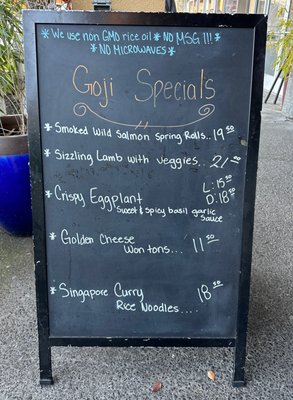 * We use non GMO rice oil * NO MSG !!! *
* NO MICROWAVES *
Goji Specials
* Smoked Wild Salmon Spring Rolls.. 19.50
* Sizzling Lamb with veggies.. 21.50
* Crispy Eggplant L: 15.50
Sweet & Spicy basil garlic D: 18.50
Sauce
* Golden Cheese
Won tons... 11.50
* Singapore Curry 18.50
Rice Noodles....